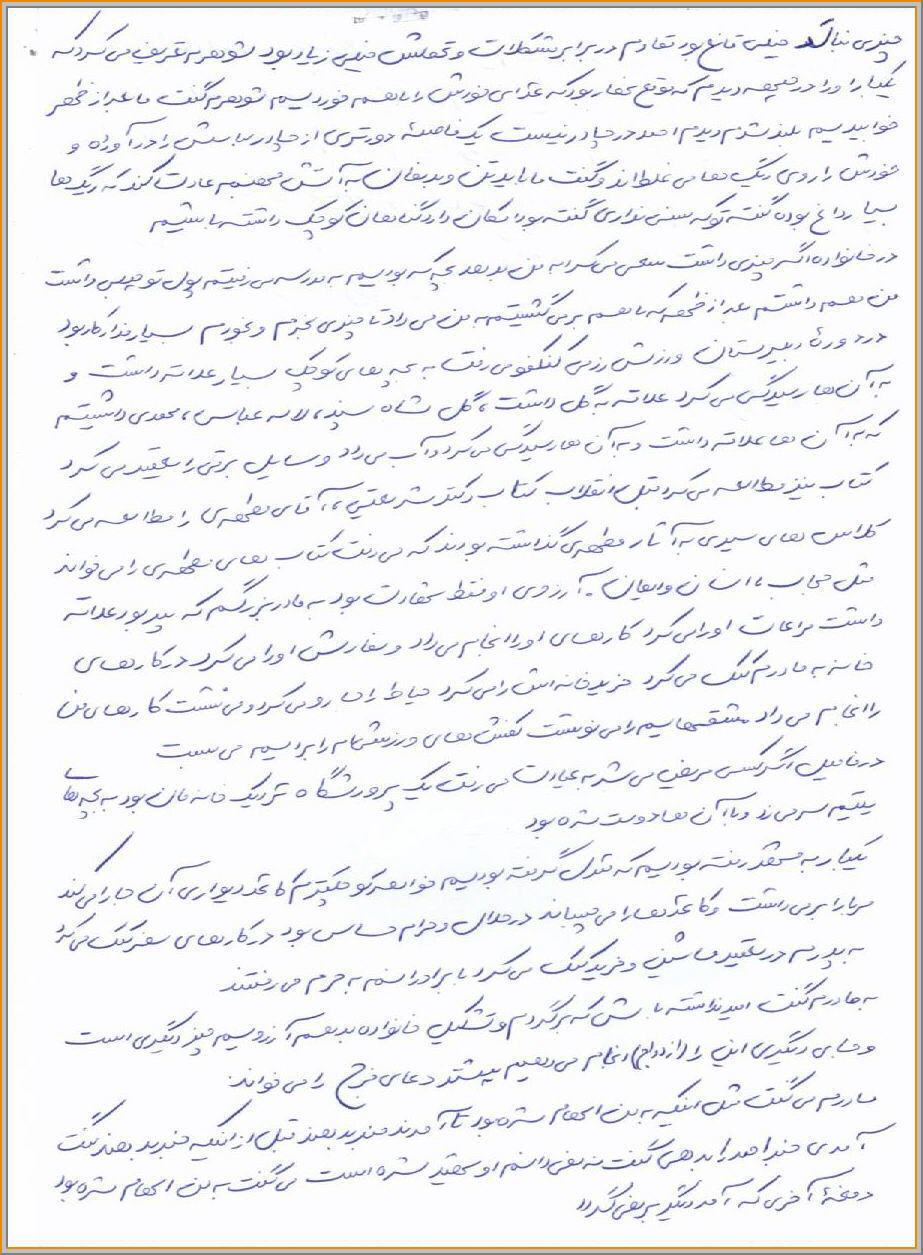 چیزی نباشد خیلی قانع بود تقادم در برابر مشکلات و تحملش خیلی زیاد بود شوهرم تعریف می کرد که
یکبار او را در جبهه دیدم که توقع نهار بود که غذای خودش را با هم خوردیم شوهرم گفت ما بعد از ظهر
خوابیدیم بلند شدم دیدم احمد در چادر نیست یک فاصلهٔ دورتری از چادر لباسش را درآورده و
خودش را روی ریگ ها می غلطاند و گفت ما باید تن و بدنمان به آتش جهنم عادت کند که ریگ ها
بسیار داغ بوده گفته تو که سنی نداری گفته بود امکان دارد گناهان کوچک داشته باشیم
در خانواده اگر چیزی داشت سعی می کرد به من بدهد بچه که بودیم به مدرسه می رفتیم پول تو جیبی داشت
من هم داشتم بعد از ظهر که با هم بر می گشتیم به من می داد تا چیزی بخرم و بخورم بسیار فداکار بود
در دورهٔ دبیرستان ورزش رزمی کنگفو می رفت به بچه های کوچک بسیار علاقه داشت و
به آن ها رسیدگی می کرد علاقه به گل داشت، گل شاه پسند، لاله عباسی، محمدی داشتیم
که به آن ها علاقه داشت و به آن ها رسیدگی می کرد و آب می داد وسایل برقی را تعمیر می کرد
کتاب نیز مطالعه می کرد قبل انقلاب کتاب دکتر شریعتی، آقای مطهری را مطالعه می کرد
کلاس های سیری به آثار مطهری گذاشته بودند که می رفت کتاب های مطهری را می خواند
مثل حجاب، انسان و ایمان. آرزوی او فقط شهادت بود به مادربزرگم که پیر بود علاقه
داشت مراعات او را می کرد کارهای او را انجام می داد و سفارش او را می کرد در کارهای
خانه به مادرم کمک می کرد خرید خانه اش را می کرد حیاط را جارو می کرد و می شست کارهای من
را انجام می داد مشقهایم را می نوشت کفش های ورزشی ام را برایم می بست
در فامیل اگر کسی مریض می شد به عیادت می رفت یک پرورشگاه نزدیک خانه مان بود به بچه های
یتیم سر می زد و با آن ها دوست شده بود
یکبار به مشهد رفته بودیم که منزل گرفته بودیم خواهر کوچکترم کاغذ دیواری آن جا را می کند
مربا را بر می داشت و کاغذ ها را می چسباند در حلال و حرام حساس بود در کارهای سفر کمک می کرد
به پدرم در تعمیر ماشین و خرید کمک می کرد با برادرانم به حرم می رفتند
به مادرم گفت امید نداشته باش که برگردم و تشکیل خانواده بدهم آرزویم چیز دیگری است
و جای دیگری این را (ازدواج) انجام می دهیم بیشتر دعای فرج را می خواند
مادرم می گفت مثل اینکه به من الهام شده بود تا آمدند خبر بدهند قبل از اینکه خبر بدهند گفت
آمدی خبر احمد را بدهی گفت نه نمی دانم او شهید شده است می گفت به من الهام شده بود
دفعهٔ آخری که آمد دیگر بر نمی گردد